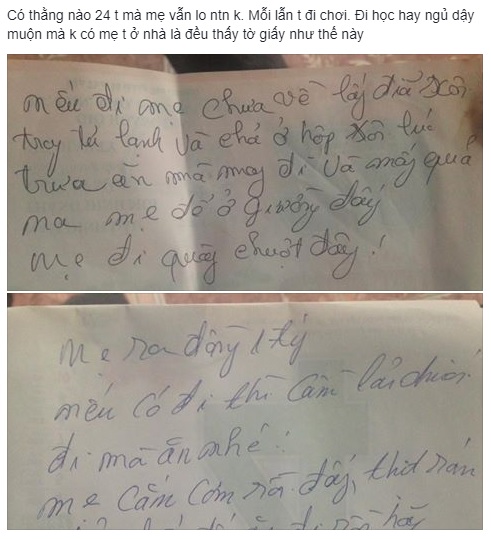 Có thằng nào 24 t mà mẹ vẫn lo ntn k. Mỗi lẫn t đi chơi. Đi học hay ngủ dậy
muộn mà k có mẹ t ở nhà là đều thấy tờ giấy như thế này
nếu đi mẹ chưa về lấy đĩa xôi
troy tủ lạnh và chả ở hộp xôi lúc
trưa ăn mà may đi và mấy quả
ma mẹ để ở giường đấy
mẹ đi quây chuột đây!
mẹ ra đồng 1 tý
nếu có đi thì cầm cái
đi mà ăn nhé!
mẹ cắm cơm rồi đấy, thịt rán